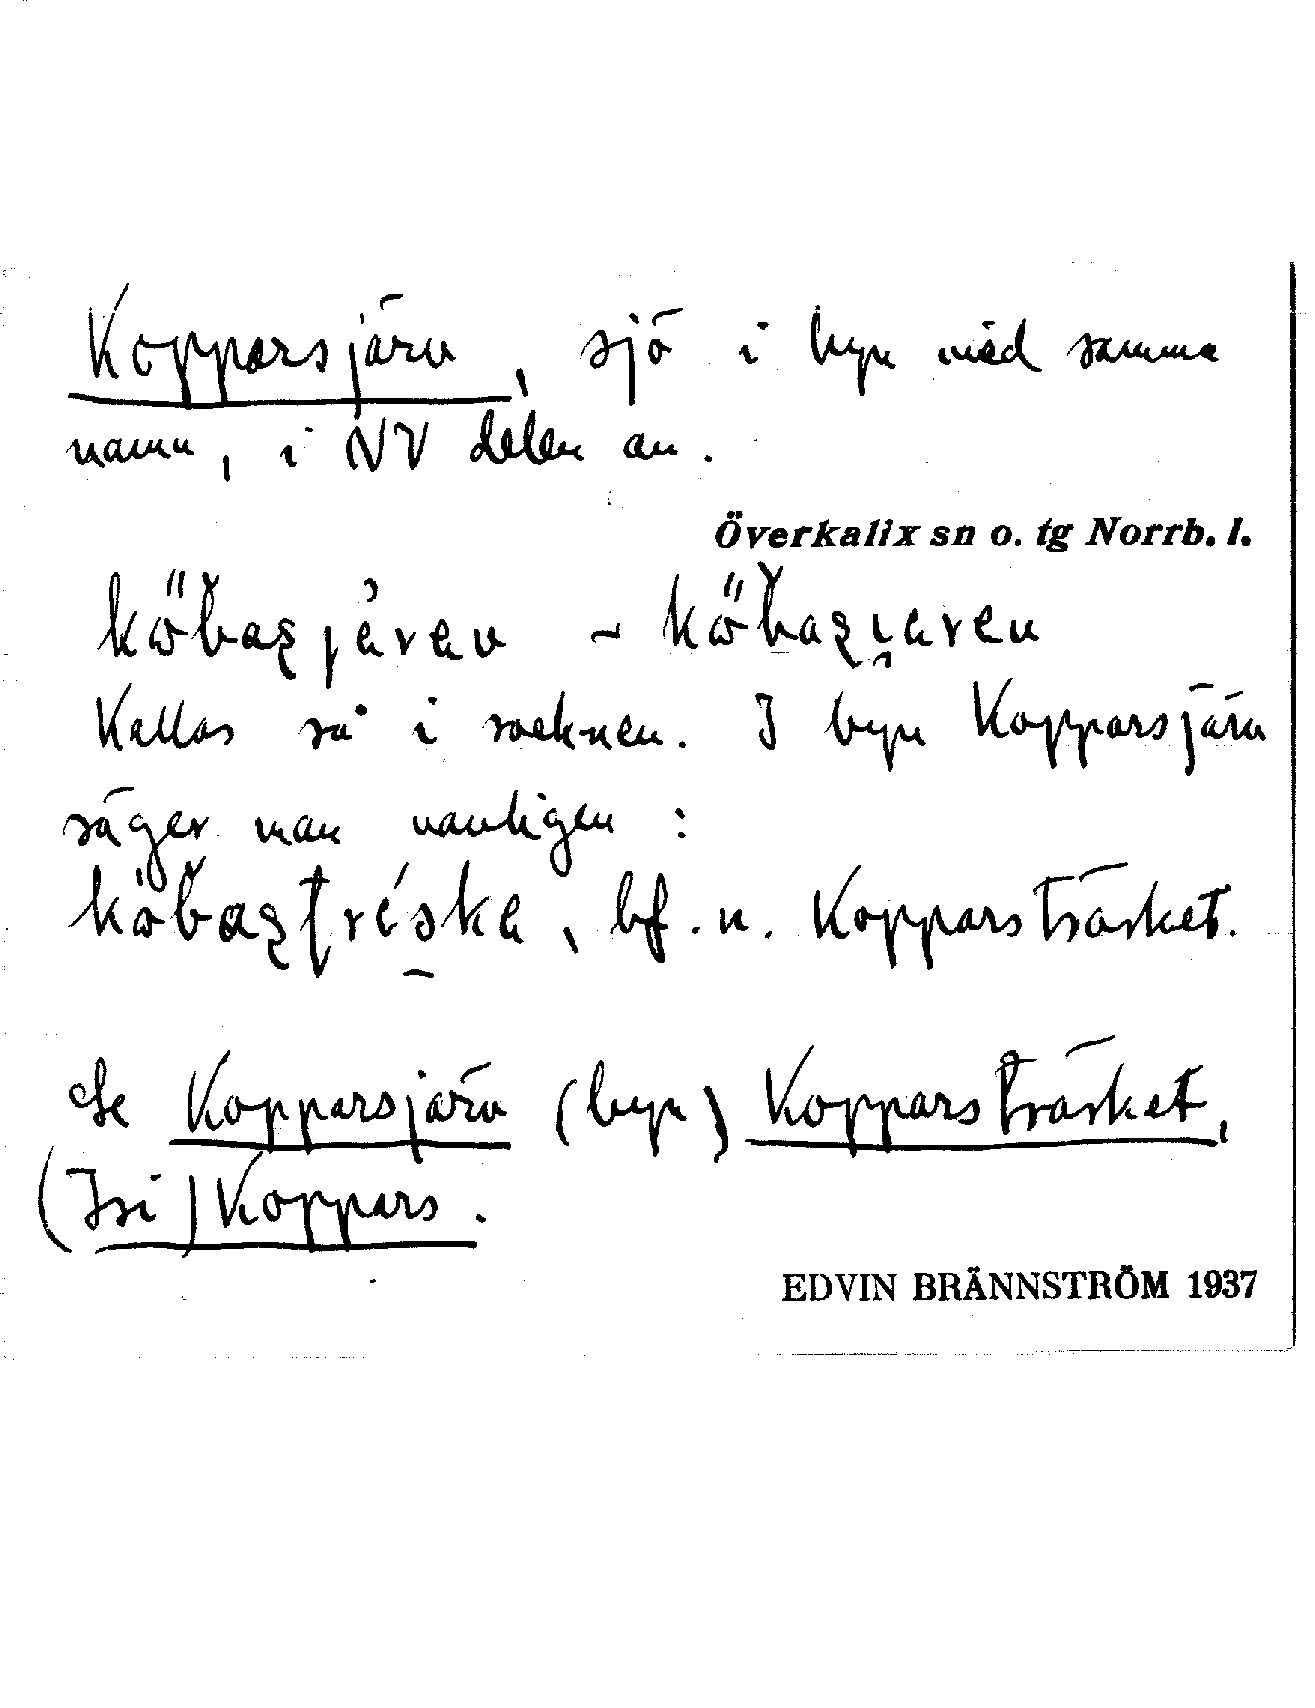 Kopparsjärv, sjö i byn med samma
namn, i NV delen av.
Överkalix sn o. tg Norrb. l.
Kallas så i socknen. I byn Kopparsjärv
säger man vanligen :
bf. n. Kopparsträsket.
Se Kopparsjärv (byn) Kopparsträsket,
(Isi) Koppars.
EDVIN BRÄNNSTRÖM 1937